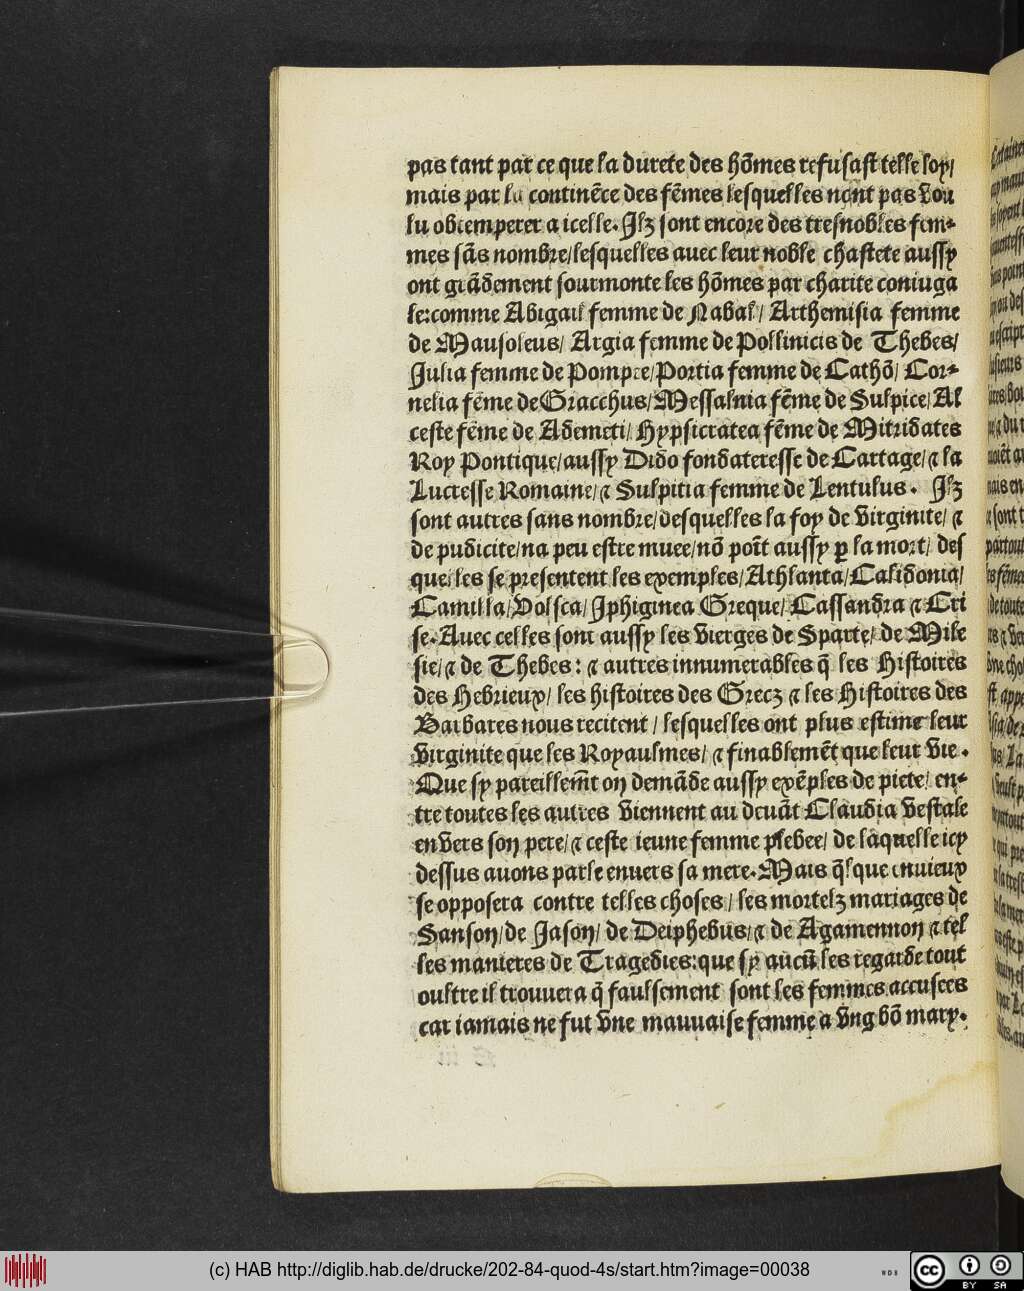 pas tant par ce que la durete des hõmes refusast telle loy/
mais par la continẽce des fẽmes lesquelles nont pas vou
lu obtemperer a icelle. Ilz sont encore des tresnobles fem-
mes sãs nombre/lesquelles auec leur noble chastete aussy
ont grãdement sourmonte les hõmes par charite coniuga
le:comme Abigail femme de Nabal/ Arthemisia femme
de Mausoleus/ Argia femme de Pollinicis de Thebes/
Julia femme de Pompee/Portia femme de Cathõ/ Cor-
nelia fẽme de Gracchus/Messalnia fẽme de Sulpice/Al
ceste fẽme de Ademeti/ Hypsicratea fẽme de Mitridates
Roy Pontique/aussy Dido fondateresse de Cartage/⁊ la
Lucresse Romaine/⁊ Sulpitia femme de Lentulus. Ilz
sont autres sans nombre/desquelles la foy de virginite/ ⁊
de pudicite/na peu estre muee/nõ poĩt aussy ꝑ la mort/ des
quelles se presentent les exemples/Athlanta/Calidonia/
Camilla/Volsca/Iphiginea Greque/ Cassandra ⁊ Cri
se. Auec celles sont aussy les vierges de Sparte/ de Mile
sie/⁊ de Thebes: ⁊ autres innumerables q̃ les Histoires
des Hebrieux/ les histoires des Grecz ⁊ les Histoires des
Barbares nous recitent / lesquelles ont plus estime leur
virginite que les Royaulmes/ ⁊ finablemẽt que leur vie.
Que sy pareillem̃t on demãde aussy exẽples de piete/ en-
tre toutes les autres viennent au deuãt Claudia vestale
envers son pere/⁊ ceste ieune femme plebee/ de laquelle icy
dessus auons parle enuers sa mere. Mais q̃lque enuieux
se opposera contre telles choses / les mortelz mariages de
Sanson/de Jason/ de Deiphebus/⁊ de Agamennon ⁊ tel
les manieres de Tragedies:que sy aucũ les regarde tout
oultre il trouuera q̃ faulsement sont les femmes accusees
car iamais ne fut vne mauuaise femme a vng bõ mary.
(c) HAB http://diglib.hab.de/drucke/202-84-quod-4s/start.htm?image=00038
WDB
CC BY SA